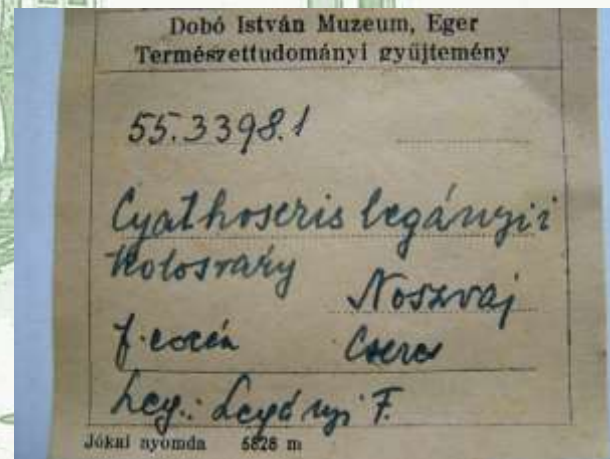 Dobó István Muzeum, Eger
Természettudományi gyűjtemény
55.3398.1
Cyathoseris legányii
Kolosváry Noszvaj
f. eocén Cseres
Leg.: Legányi F.
Jókai nyomda 5828 m